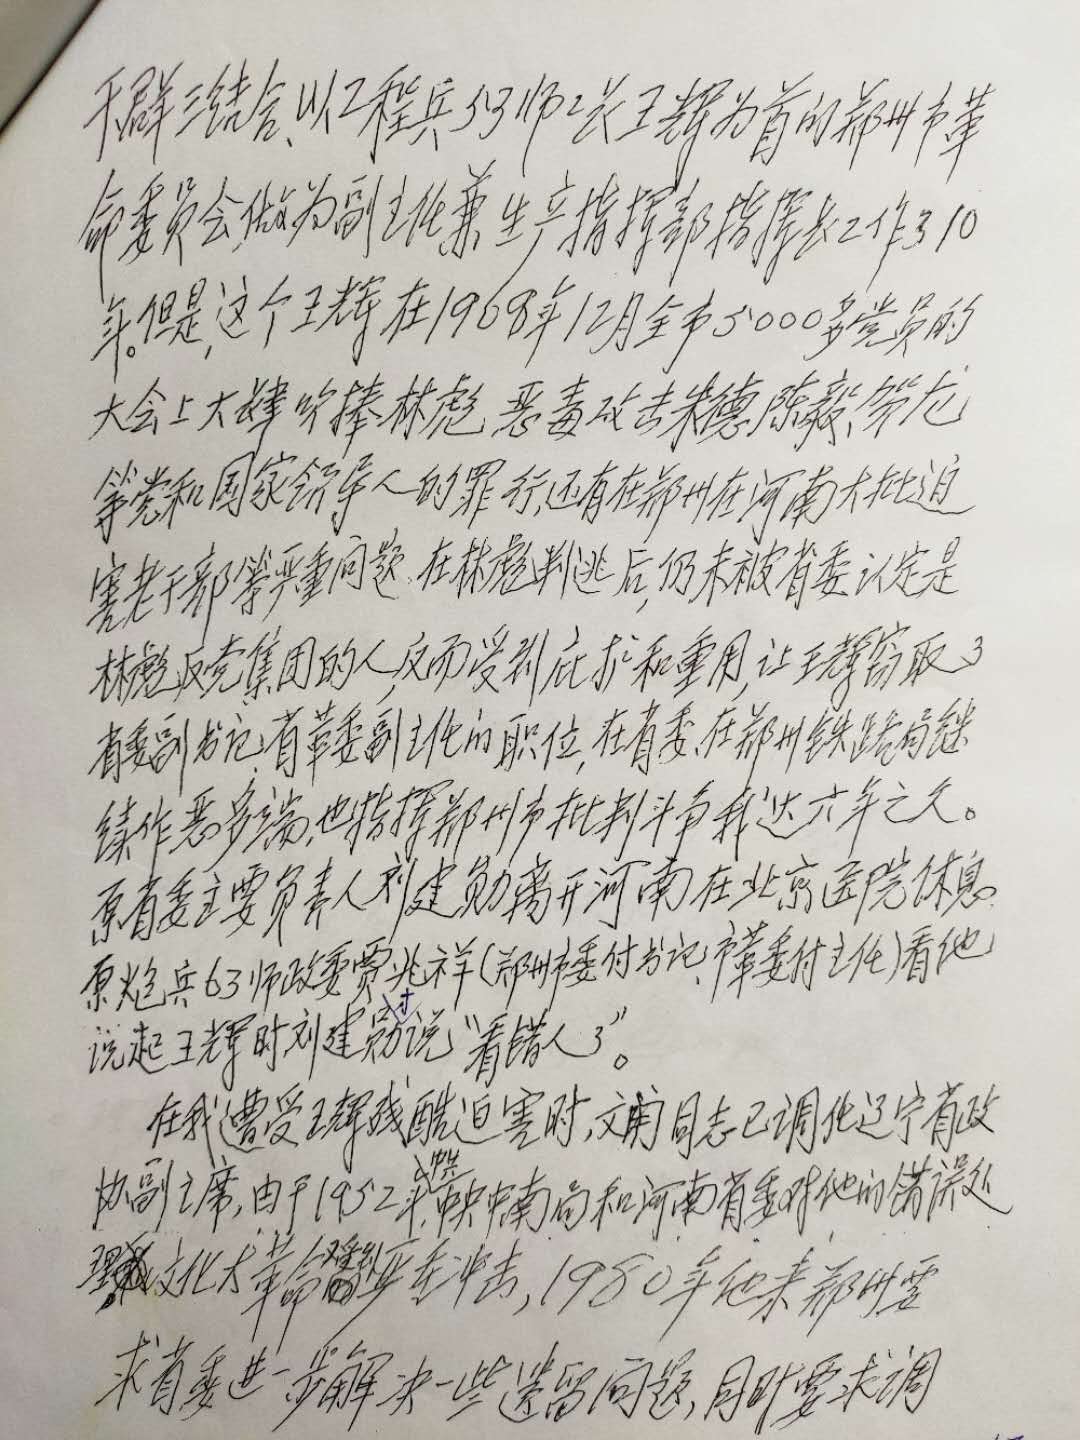 干群三结合、以工程兵53师师长王辉为首的郑州市革
命委员会做为副主任兼生产指挥部指挥长工作了10
年。但是,这个王辉在1968年12月全市5000多党员的
大会上大肆吹捧林彪恶毒攻击朱德、陈毅、贺龙
等党和国家领导人的罪行,还有在郑州在河南大批迫
害老干部等严重问题.在林彪判逃后,仍未被省委认定是
林彪反党集团的人,反而受到庇护和重用,让王辉窃取了
省委副书记、省革委副主任的职位,在省委、在郑州铁路局继
续作恶多端,也指挥郑州市批判斗争我达六年之久。
原省委主要负责人刘建勋离开河南在北京医院休息.
原炮兵63师政委贾兆祥(郑州市委付书记、市革委付主任)看他
说起王辉时刘建勋讨说“看错人了”。
在我遭受王辉残酷迫害时,文甫同志已调化辽宁省政
协副主席,由于1952年,中共中央中南局和河南省委对他的错误处
理文化大革命严重冲击,1980年他来郑州要
求省委进一步解决一些遗留问题,同时要求调